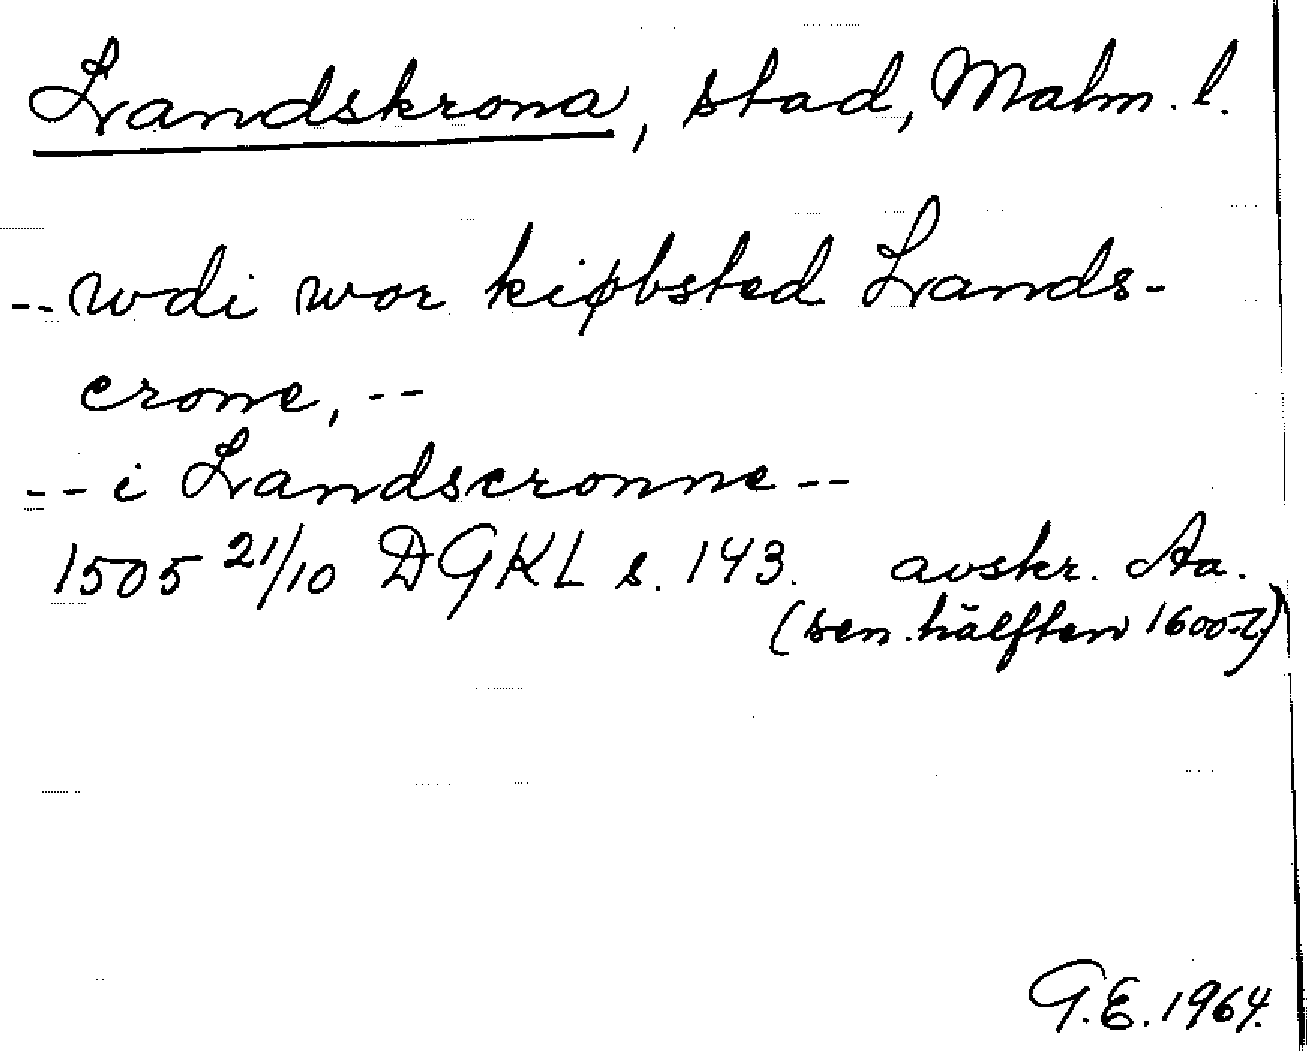 Landskrona, stad, Malm. l.
-- wdi wor kiøbsted Lands-
crone, --
-- i Landscronne --
1505 21/10 DGKL s. 143. avskr. Aa.
(sen. hälften 1600-t)
G.E. 1964.